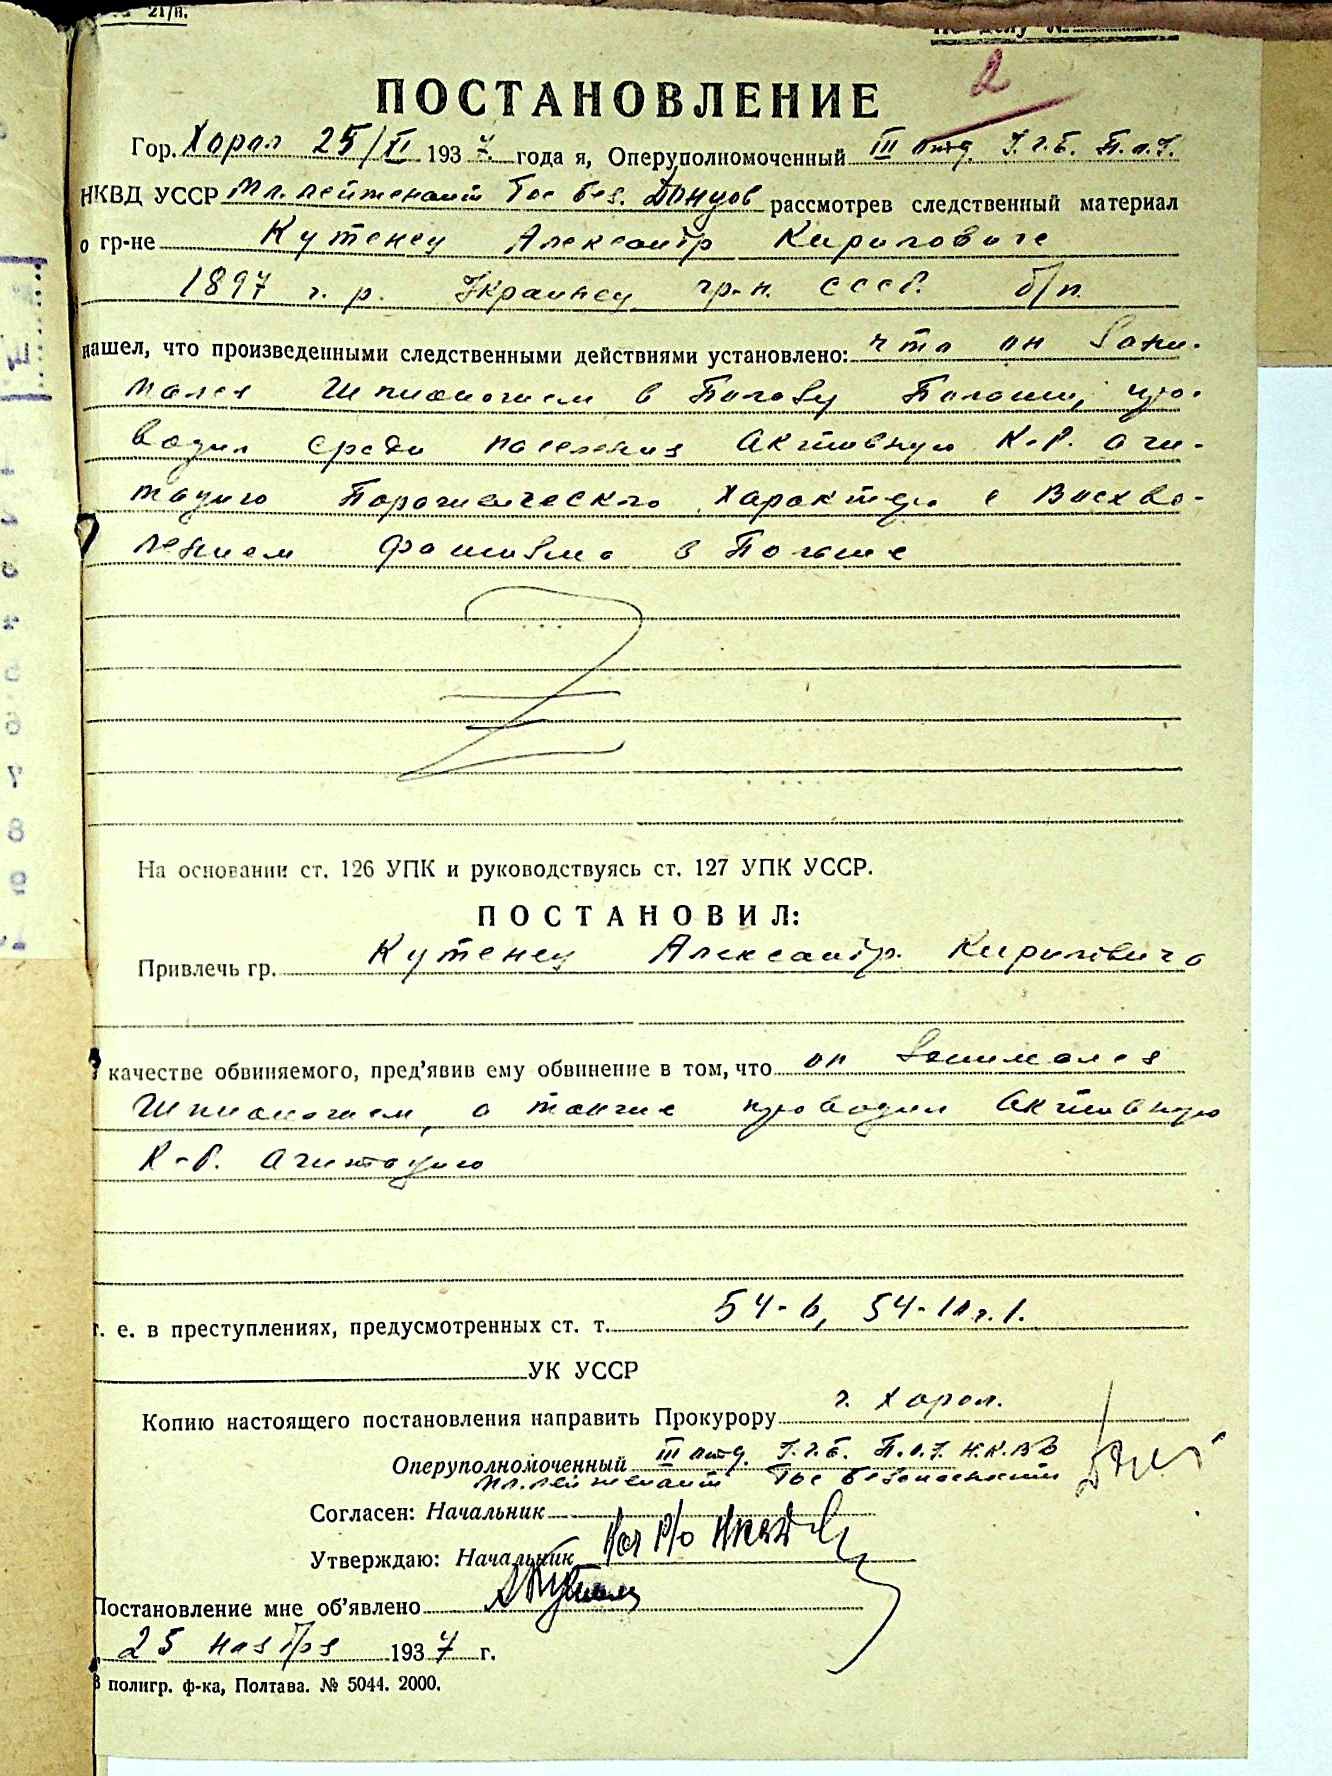 21/п.
По делу №
2
ПОСТАНОВЛЕНИЕ
Гор. Хорол 25/XI 1937 года я, Оперуполномоченный III отд. У.г.б. П.о.У.
НКВД УССР Мл. лейтенант Гос без. Донцов рассмотрев следственный материал
о гр-не Кутенец Александр Кирилович
1897 г. р. Украинец гр-н. СССР. б/п.
нашел, что произведенными следственными действиями установлено: что он зани-
мался шпионажем в пользу Польши, про-
водил среди населения активную к-р. аги-
тацию с восхва-
лением фашизма в Польше
На основании ст. 126 УПК и руководствуясь ст. 127 УПК УССР.
ПОСТАНОВИЛ:
Привлечь гр. Кутенец Александр. Кириловича
качестве обвиняемого, пред'явив ему обвинение в том, что он занимался
шпионажем, а также проводил активную
к-р. агитацию
т. е. в преступлениях, предусмотренных ст. т. 54-6, 54-10 ч. 1.
УК УССР
Копию настоящего постановления направить Прокурору г. Хорол.
Оперуполномоченный III отд. У.г.б. П.о.У. Н.К.В.Д
мл. лейтенант Гос безопасности
Согласен: Начальник
Утверждаю: Начальник Нач Р/о НКВД
Постановление мне об'явлено
25 ноября 1937 г.
полигр. ф-ка, Полтава. № 5044. 2000.